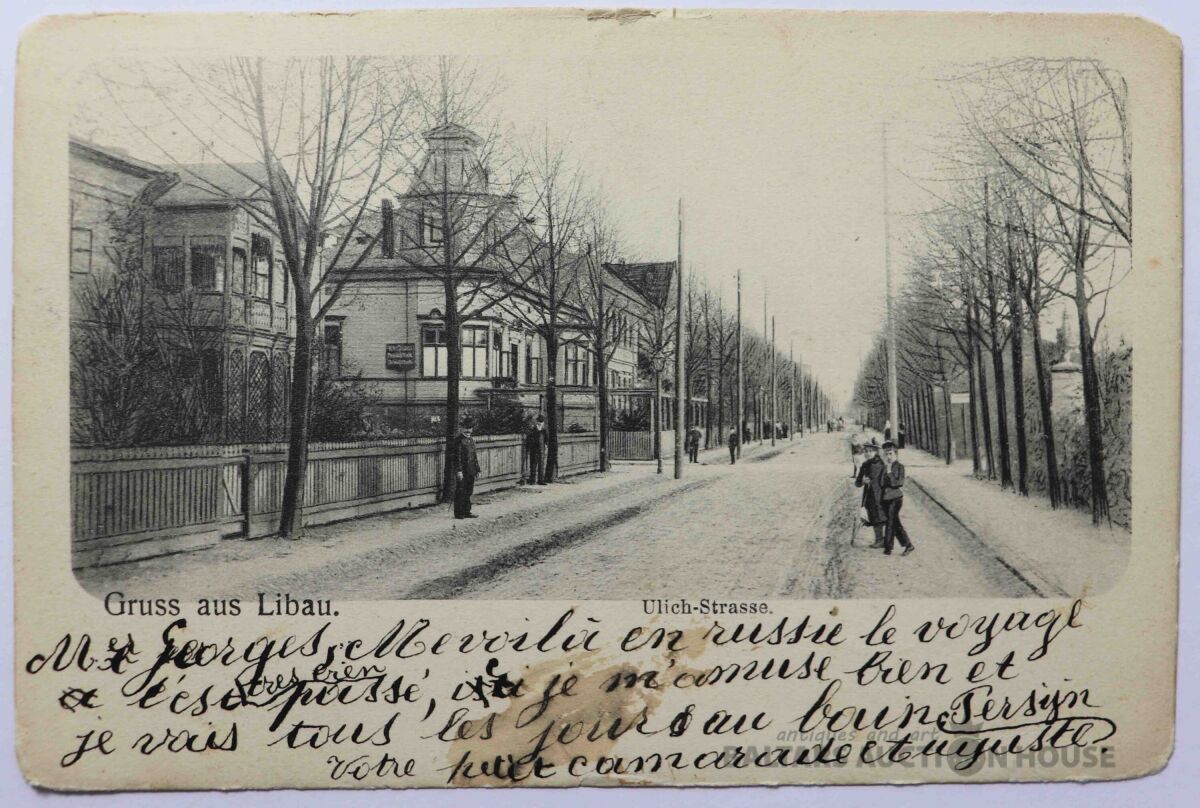 Gruss aus Libau.
Ulich-Strasse.
Mr Georges, Me voilà en russie le voyage
a l'ésu très bien passé, ici je m'amuse bien et
je vais tous les jours au bain Persijn
Votre petit camarade Auguste.
antiques and art
BALTARS AUCTION HOUSE